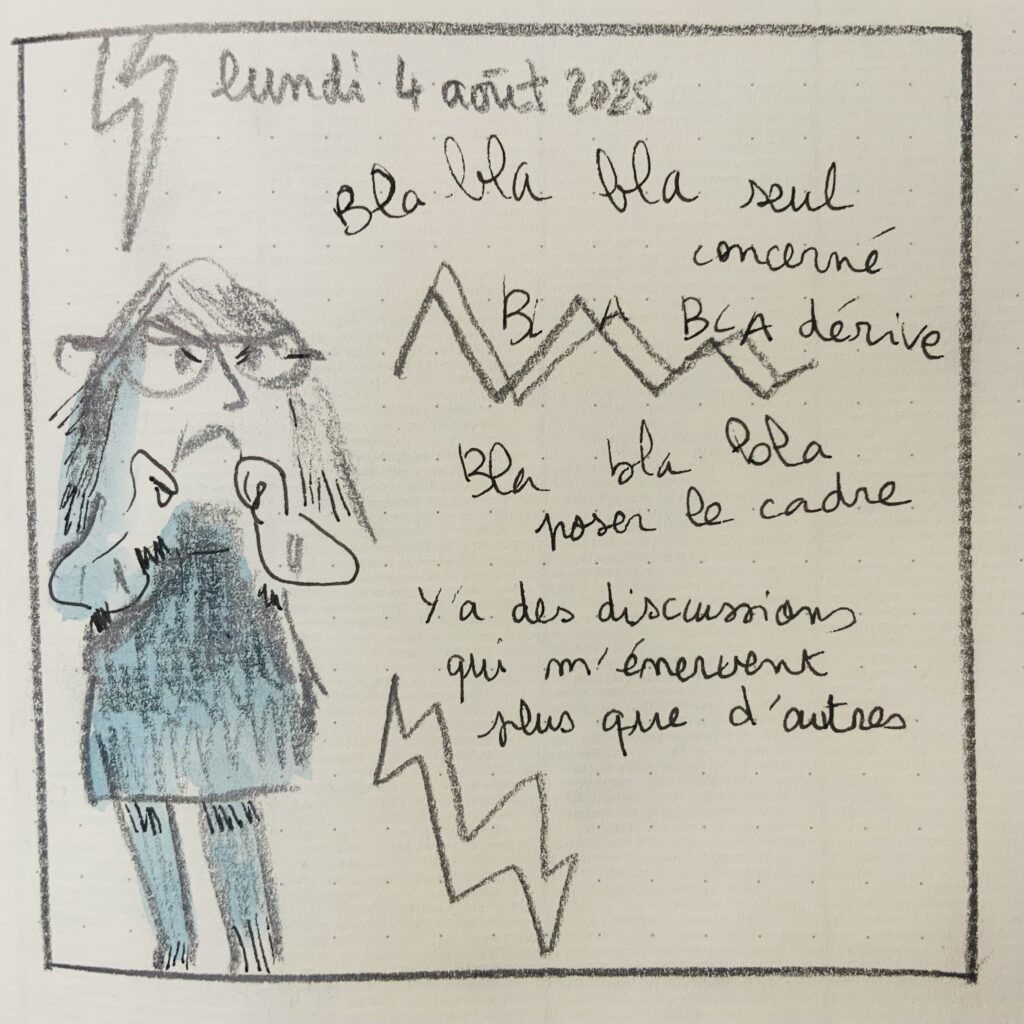 lundi 4 août 2025
Bla bla bla seul
concerné
BLA BLA dérive
Bla bla bla
poser le cadre
Y'a des discussions
qui m'énervent
plus que d'autres